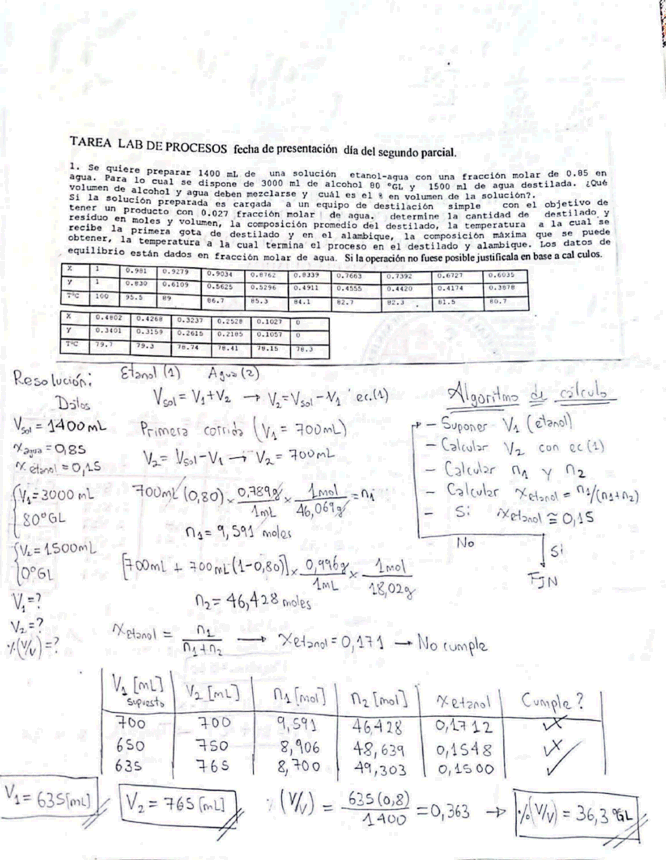 TAREA LAB DE PROCESOS fecha de presentación día del segundo parcial.
1. Se quiere preparar 1400 mL de una solución etanol-agua con una fracción molar de 0.85 en
agua. Para lo cual se dispone de 3000 ml de alcohol 80 °GL y 1500 ml de agua destilada. ¿Qué
volumen de alcohol y agua deben mezclarse y cuál es el % en volumen de la solución?.
Si la solución preparada es cargada a un equipo de destilación simple con el objetivo de
tener un producto con 0.027 fracción molar de agua. determine la cantidad de destilado y
residuo en moles y volumen, la composición promedio del destilado, la temperatura a la cual se
recibe la primera gota de destilado y en el alambique, la composición máxima que se puede
obtener, la temperatura a la cual termina el proceso en el destilado y alambique. Los datos de
equilibrio están dados en fracción molar de agua. Si la operación no fuese posible justifícala en base a cal culos.
X 1 0.981 0.9279 0.9034 0.8762 0.8339 0.7663 0.7392 0.6727 0.6035
Y 1 0.830 0.6109 0.5625 0.5296 0.4911 0.4555 0.4420 0.4174 0.3878
T°C 100 95.5 89 86.7 85.3 84.1 82.7 82.3 81.5 80.7
X 0.4802 0.4268 0.3237 0.2528 0.1027 0
Y 0.3401 0.3159 0.2615 0.2185 0.1057 0
T°C 79.7 79.3 78.74 78.41 78.15 78.3
Resolución: Etanol (1) Agua (2)
Datos
Vsol = V1 + V2 → V2 = Vsol - V1 ec.(1)
Algoritmo de cálculo
Vsol = 1400 mL
Primera corrida (V1 = 700mL)
- Suponer V1 (etanol)
x agua = 0,85
V2 = Vsol - V1 → V2 = 700mL
- Calcular V2 con ec(1)
x etanol = 0,15
- Calcular n1 y n2
V1 = 3000 mL
700mL (0,80) × 0,789g/1mL × 1mol/46,069g = n1
- Calcular xetanol = n1/(n1+n2)
80°GL
- Si xetanol ≅ 0,15
n1 = 9,591 moles
No
Si
V2 = 1500mL
0°GL
[700mL + 700mL(1-0,80)] × 0,996g/1mL × 1mol/18,02g
FIN
V1 = ?
n2 = 46,428 moles
V2 = ?
%(V/V) = ?
xetanol = n1/(n1+n2) → xetanol = 0,171 → No cumple
V1 [mL] supuesto V2 [mL] n1 [mol] n2 [mol] xetanol Cumple?
700 700 9,591 46,428 0,1712 ✗
650 750 8,906 48,639 0,1548 ✗
635 765 8,700 49,303 0,1500 ✓
V1 = 635[mL] V2 = 765 [mL] %(V/V) = 635(0,8)/1400 = 0,363 → %(V/V) = 36,3 °GL